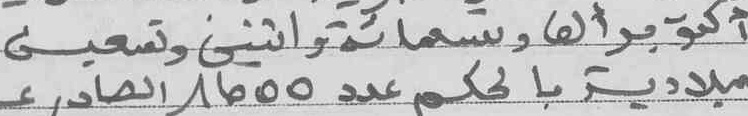 أكتوبر ألف وتسعمائة واثنين وتسعين
ميلادية بالحكم عدد 18655 الصادر عـ